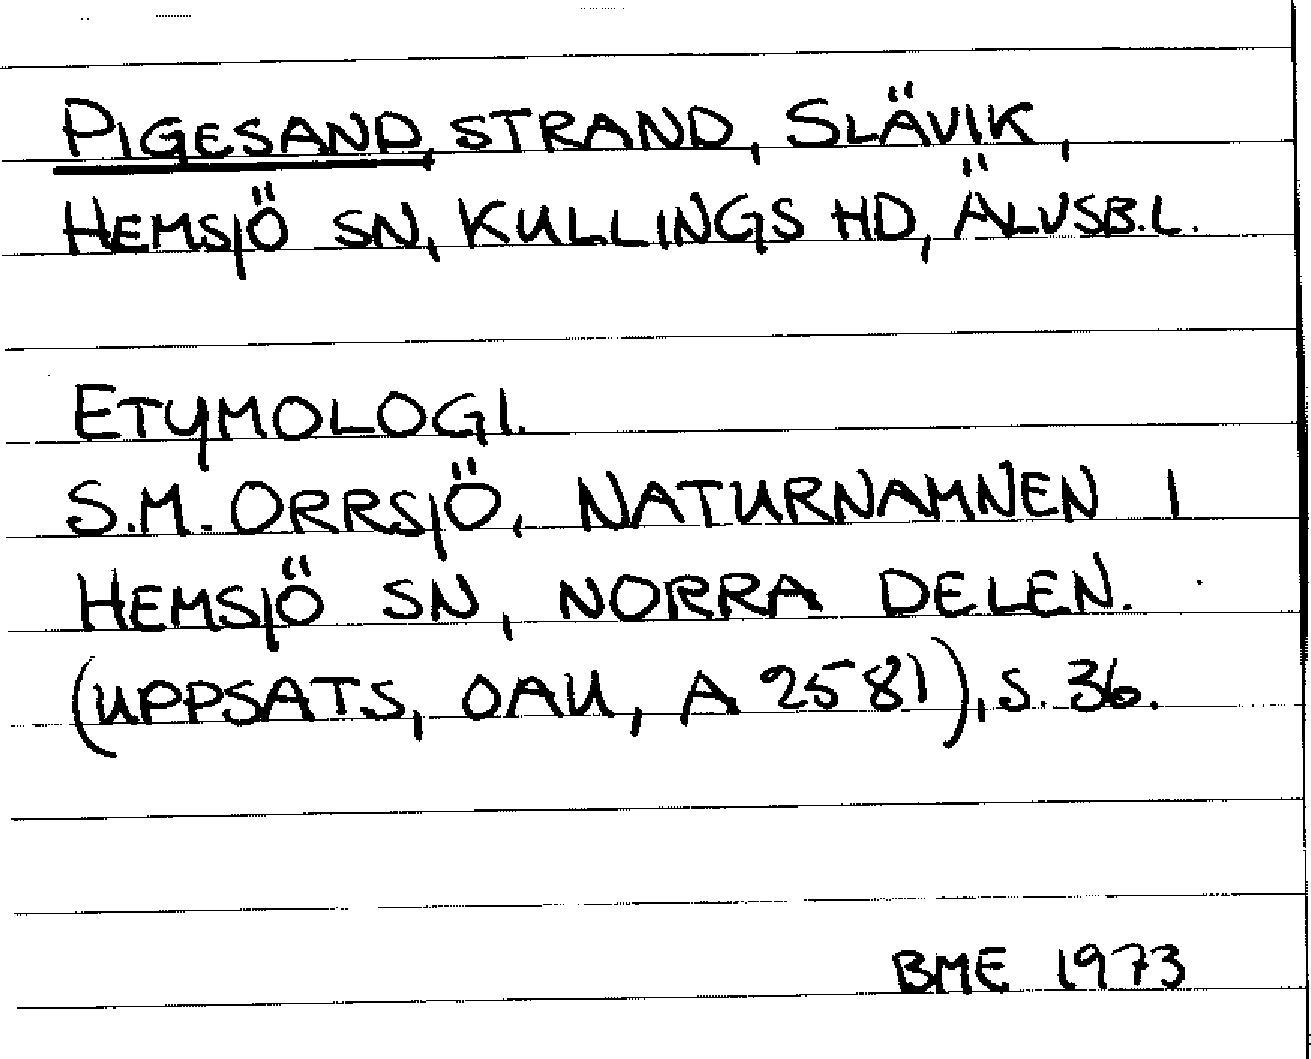 PIGESAND, STRAND, SLÄVIK,
HEMSJÖ SN, KULLINGS HD, ÄLVSB.L.
ETYMOLOGI.
S.M. ORRSJÖ, NATURNAMNEN I
HEMSJÖ SN, NORRA DELEN.
(UPPSATS, OAU, A 2581), S. 36.
BME 1973